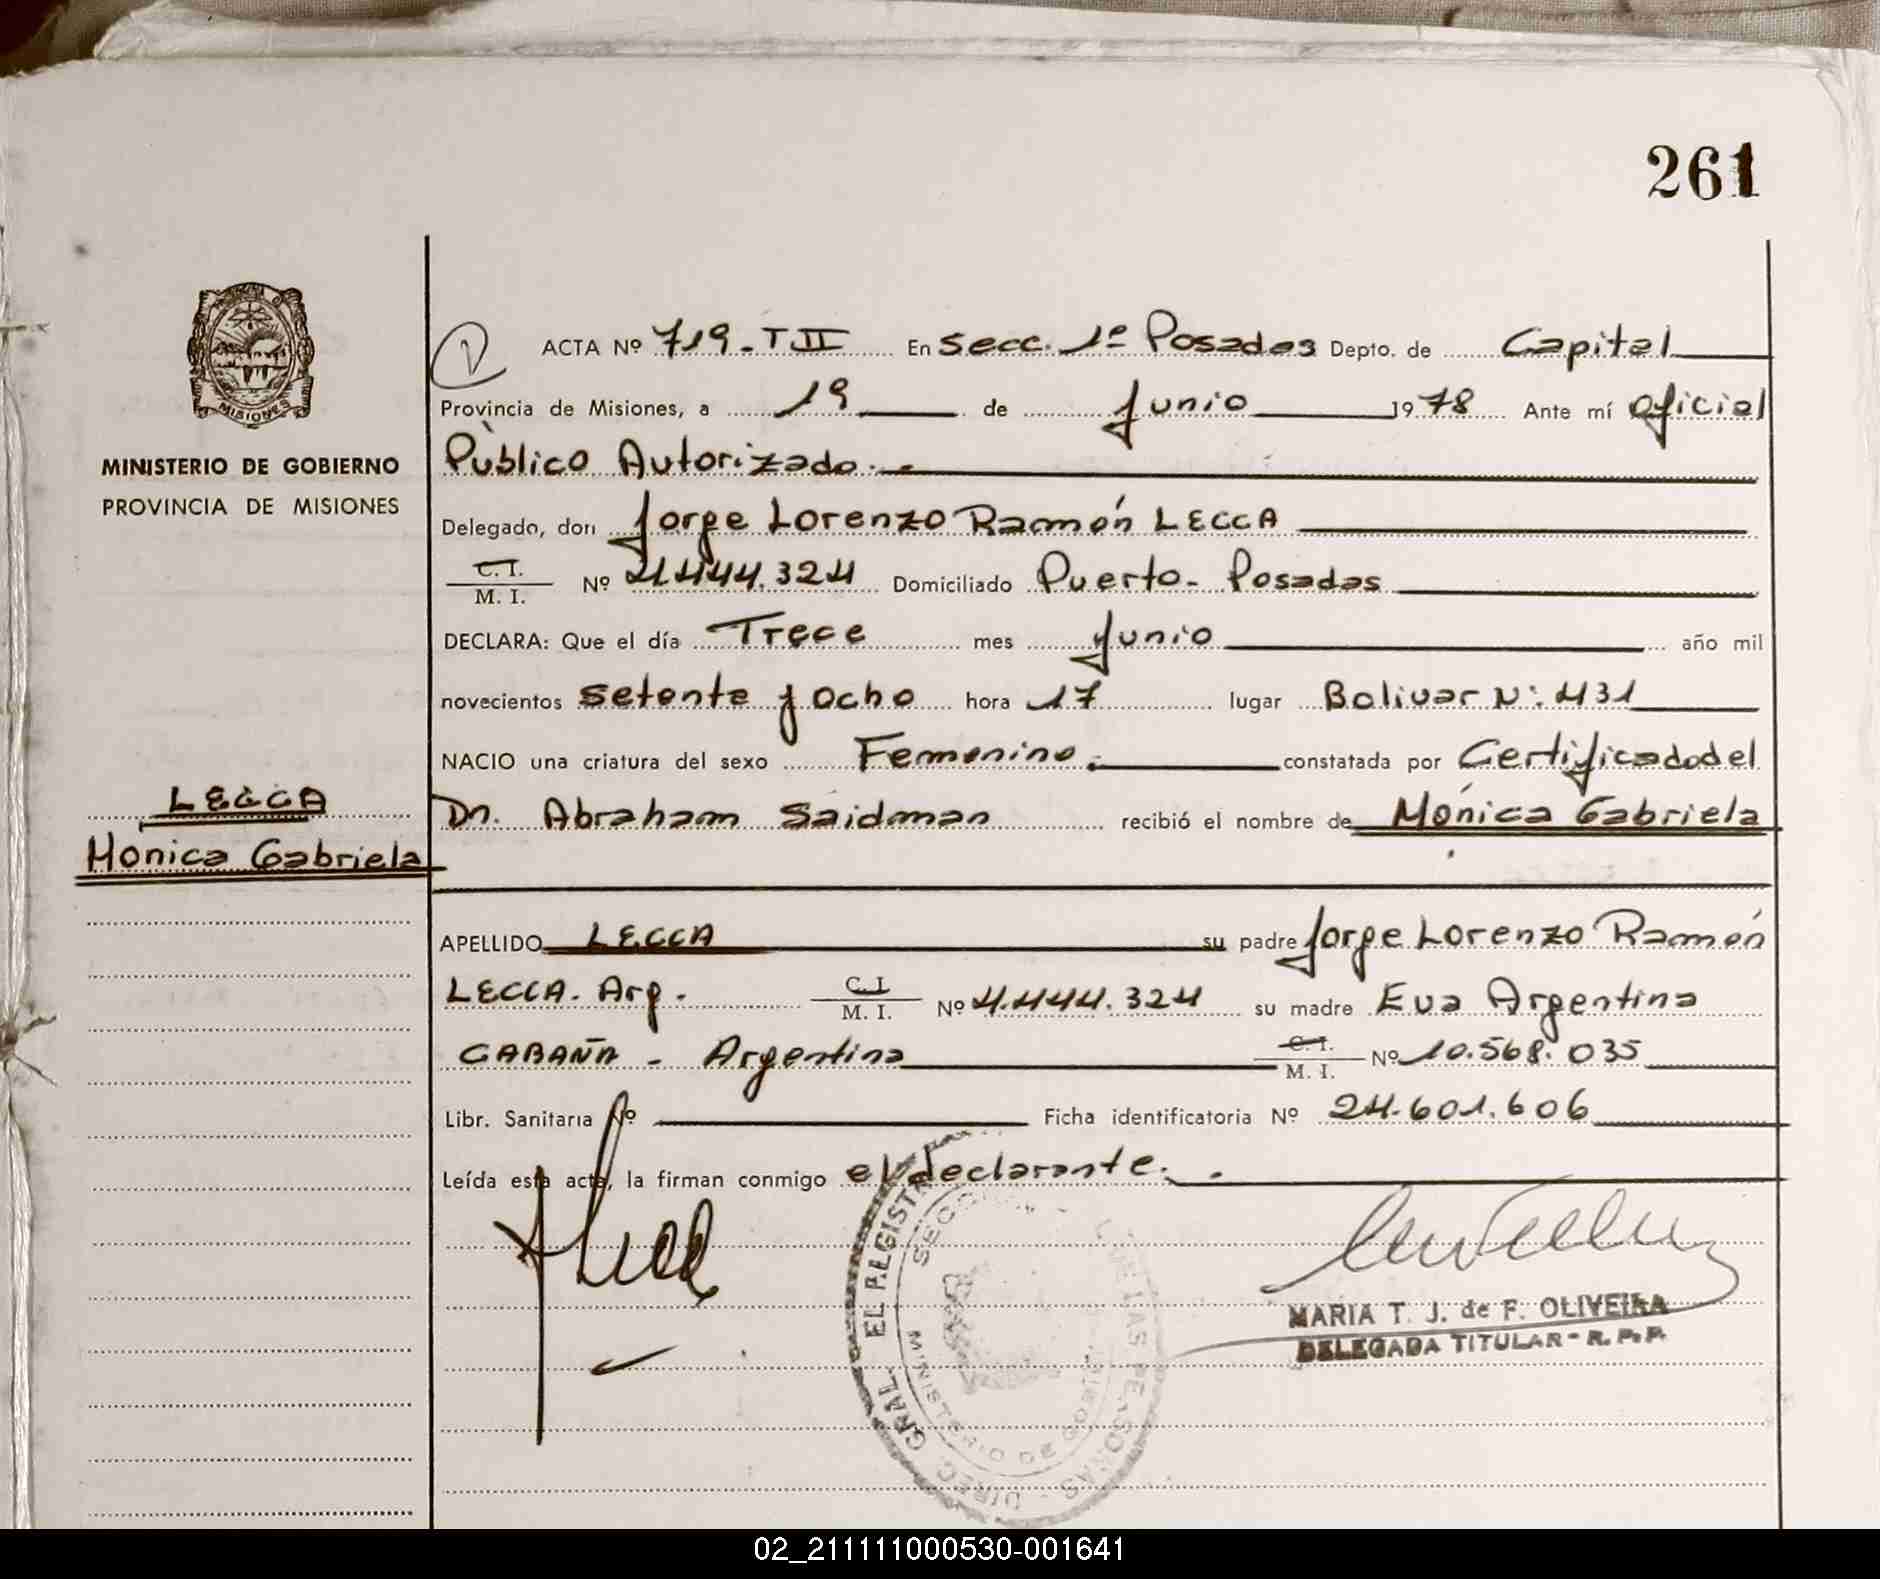 261
ACTA Nº 719-T II En Secc. 1º Posadas Depto. de Capital
Provincia de Misiones, a 19 de Junio 1978 Ante mí Oficial
Público Autorizado.-
MINISTERIO DE GOBIERNO
PROVINCIA DE MISIONES
Delegado, don Jorge Lorenzo Ramón LECCA
C. I.
M. I. Nº 4.444.324 Domiciliado Puerto- Posadas
DECLARA: Que el día Trece mes Junio año mil
novecientos setenta y ocho hora 17 lugar Bolivar Nº: 431
NACIO una criatura del sexo Femenino. constatada por Certificado del
LECCA
Mónica Gabriela
Dr. Abraham Saidman recibió el nombre de Mónica Gabriela
APELLIDO LECCA su padre Jorge Lorenzo Ramón
LECCA. Arg. C. I. M. I. Nº 4.444.324 su madre Eva Argentina
CABAÑA - Argentina C. I. M. I. Nº 10.568.035
Libr. Sanitaria Nº Ficha identificatoria Nº 24.601.606
Leída esta acta, la firman conmigo el declarante.
MARIA T. J. de F. OLIVEIRA
DELEGADA TITULAR - R. P. P.
02_211111000530-001641